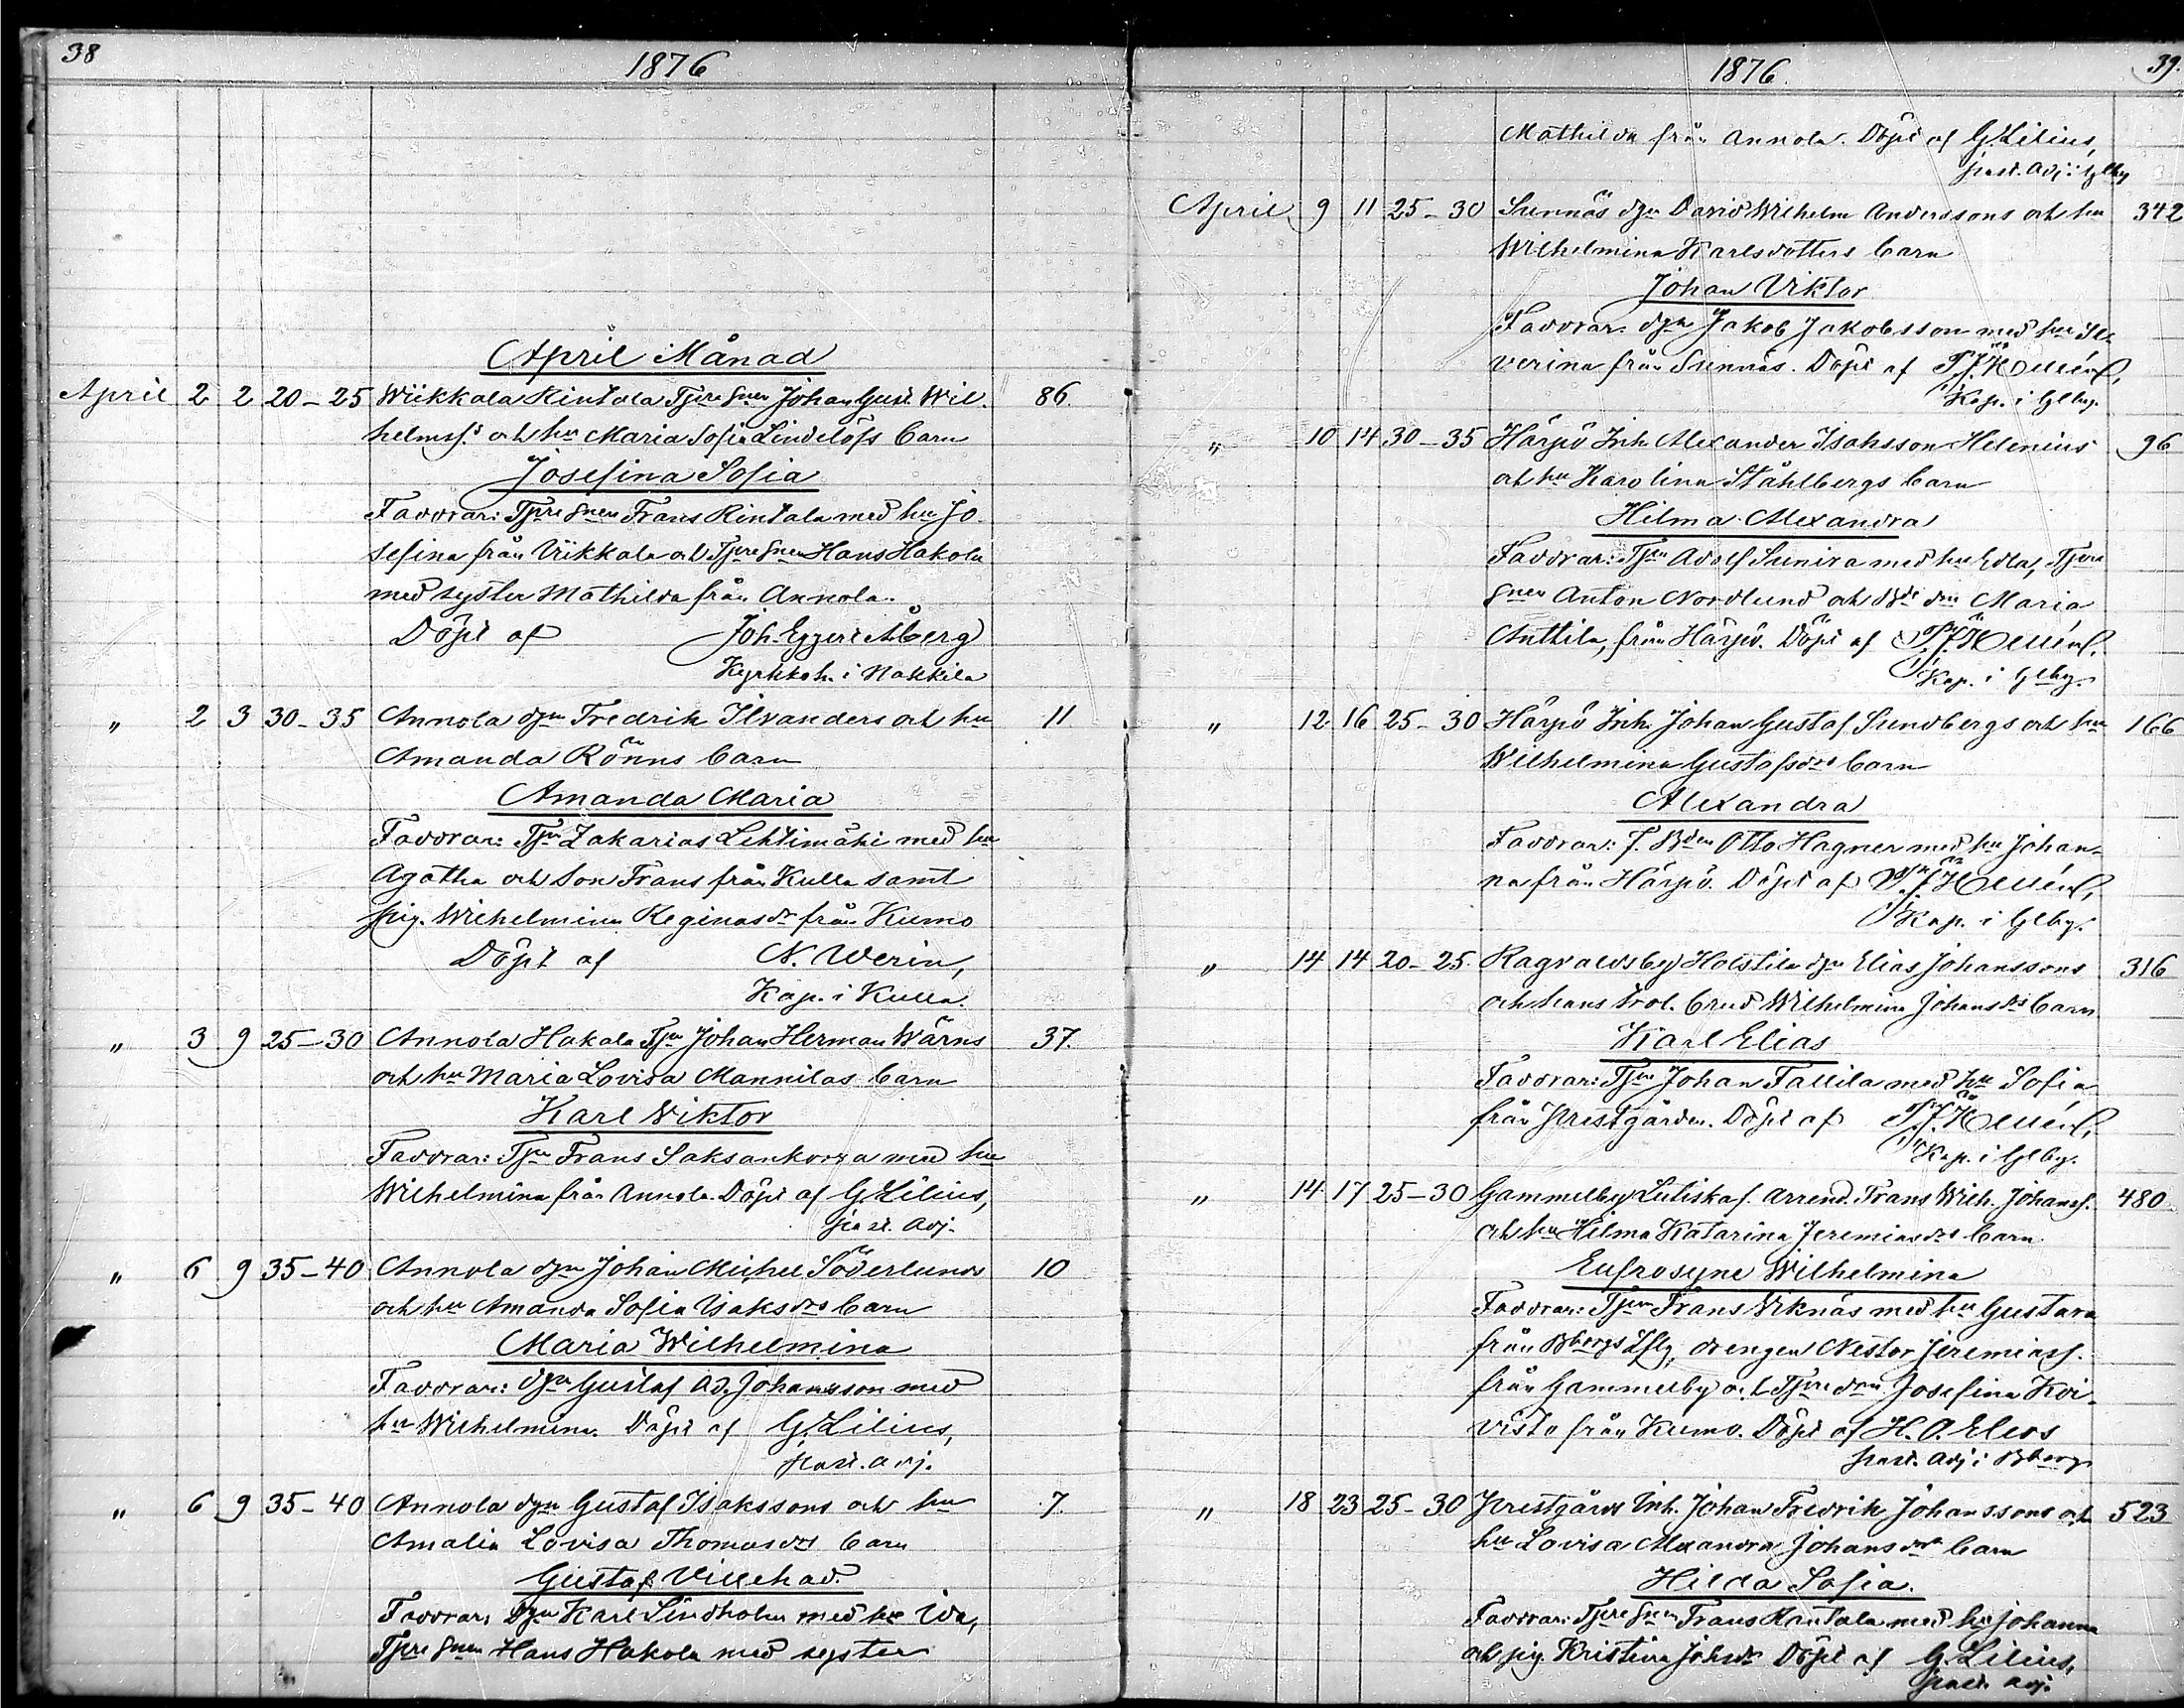 38
1876
April Månad
April 2 2 20-25 Wiikkala Rintala Tjre Snen Johan Gust. Wil- 86.
helmss. och hu Maria Sofia Lindelöfs barn
Josefina Sofia
Faddrar: Tjre Snen Frans Rintala med hu Jo-
sefina från Viikkala och Tjre Snen Hans Hakola
med syster Mathilda från Annola.
Döpt af Joh. Eggert Åberg
Kyrkkoh. i Nakkila
" 2 3 30-35 Annola dgn Fredrik Ilvanders och hu 11
Amanda Rönns barn
Amanda Maria
Faddrar: Tjn Zakarias Lehtimäki med hu
Agatha och Son Frans från Kulla samt
pig. Wilhelmina Reginasdr från Kumo
Döpt af N. Werin,
Kap. i Kulla.
" 3 9 25-30 Annola Hakala Tjn Johan Herman Wärns 37.
och hu Maria Lovisa Mannilas barn
Karl Wiktor
Faddrar: Tjn Frans Saksankorva med hu
Wilhelmina från Annola. Döpt af G. Lilius,
past. adj.
" 6 9 35-40 Annola dgn Johan Michel Söderlunds 10
och hu Amanda Sofia Isaksdrs barn
Maria Wilhelmina
Faddrar: dgn Gustaf Ad. Johansson med
hu Wilhelmina. Döpt af G. Lilius,
past. adj.
" 6 9 35-40 Annola dgn Gustaf Isakssons och hu 7.
Amalia Lovisa Thomasdrs barn
Gustaf Villehad.
Faddrar: dgn Karl Lindholm med hu Ida,
Tjre Snen Hans Hakola med syster
1876.
39.
Mathilda från Annola. Döpt af G. Lilius,
past. adj. i Glby
April 9 11 25-30 Sunnäs dgn David Wilhelm Anderssons och hu 342
Wilhelmina Karlsdotters barn
Johan Viktor
Faddrar: dgn Jakob Jakobsson med hu Se-
verina från Sunnäs. Döpt af
Kap. i Glby.
" 10 14 30-35 Härpö Inh. Alexander Isaksson Helenius 96
och hu Karolina Ståhlbergs barn
Hilma Alexandra
Faddrar: Tjn Adolf Sunira med hu Edla, Tjre
Snen Anton Nordlund och Maria
Anttila, från Härpö. Döpt af
Kap. i Glby.
" 12 16 25-30 Härpö Inh. Johan Gustaf Sundbergs och hu 166
Wilhelmina Gustafsdrs barn
Alexandra
Faddrar: f. Bden Otto Hagner med hu Johan-
na från Härpö. Döpt af
Kap. i Glby.
" 14 14 20-25. Ragvaldsby Holstila dgn Elias Johanssons 316
och hans trol. brud Wilhelmina Johansdrs barn
Karl Elias
Faddrar: Tjn Johan Tallila med hu Sofia
från Prestgården. Döpt af
Kap. i Glby.
" 14 17 25-30 Gammelby Lutiska f. arrend. Frans Wilh. Johanss. 480
och hu Hilma Katarina Jeremiasdrs barn
Eufrosyne Wilhelmina
Faddrar: Tjn Frans Viknäs med hu Gustava
från Bbergs Lfg, drengen Nestor Jeremiass.
från Gammelby och Tjre drn Josefina Koi-
visto från Kumo. Döpt af H. O.
past. adj. i Bberg
" 18 23 25-30 Prestgårds Inh. Johan Fredrik Johanssons och 523
hu Lovisa Alexandra Johansdrs barn
Hilda Sofia.
Faddrar: Tjre Snen Frans Rantala med hu Johanna
och pig. Kristina Johsdr Döpt af G. Lilius,
past. adj.